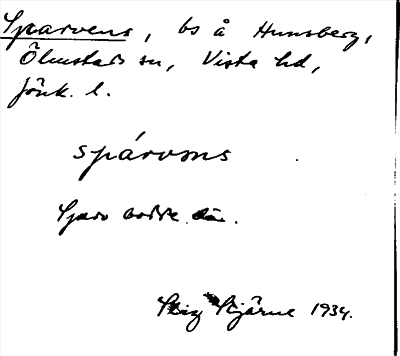 Sparvens, bs å Hunsberg,
Ölmstads sn, Vista hd,
Jönk. l.
spárvəns
Sparv bodde där.
Stig Stjärne 1934.